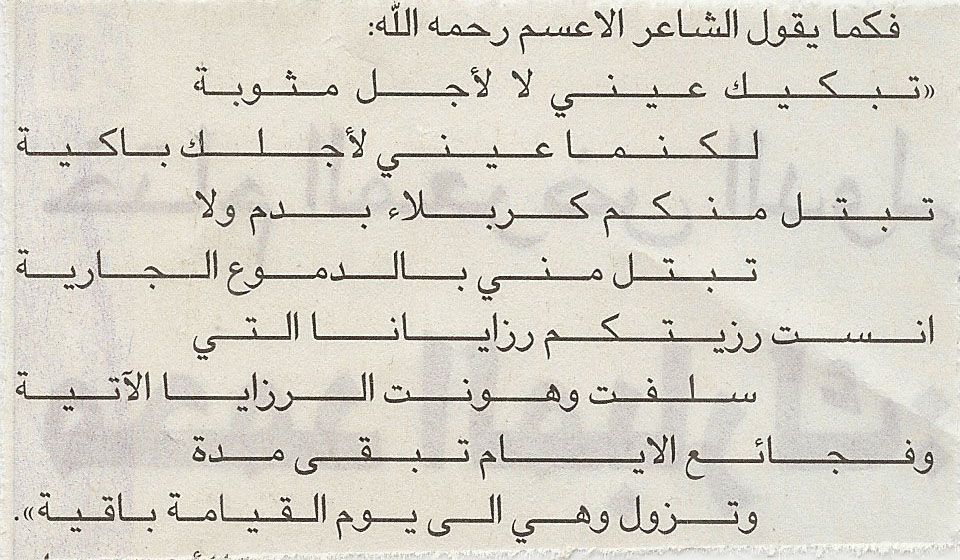 فكما يقول الشاعر الاعسم رحمه الله:
«تبكيك عيني لا لأجل مثوبة
لكنما عيني لأجلك باكية
تبتل منكم كربلاء بدم ولا
تبتل مني بالدموع الجارية
انست رزيتكم رزايانا التي
سلفت وهونت الرزايا الآتية
وفجائع الايام تبقى مدة
وتزول وهي الى يوم القيامة باقية».